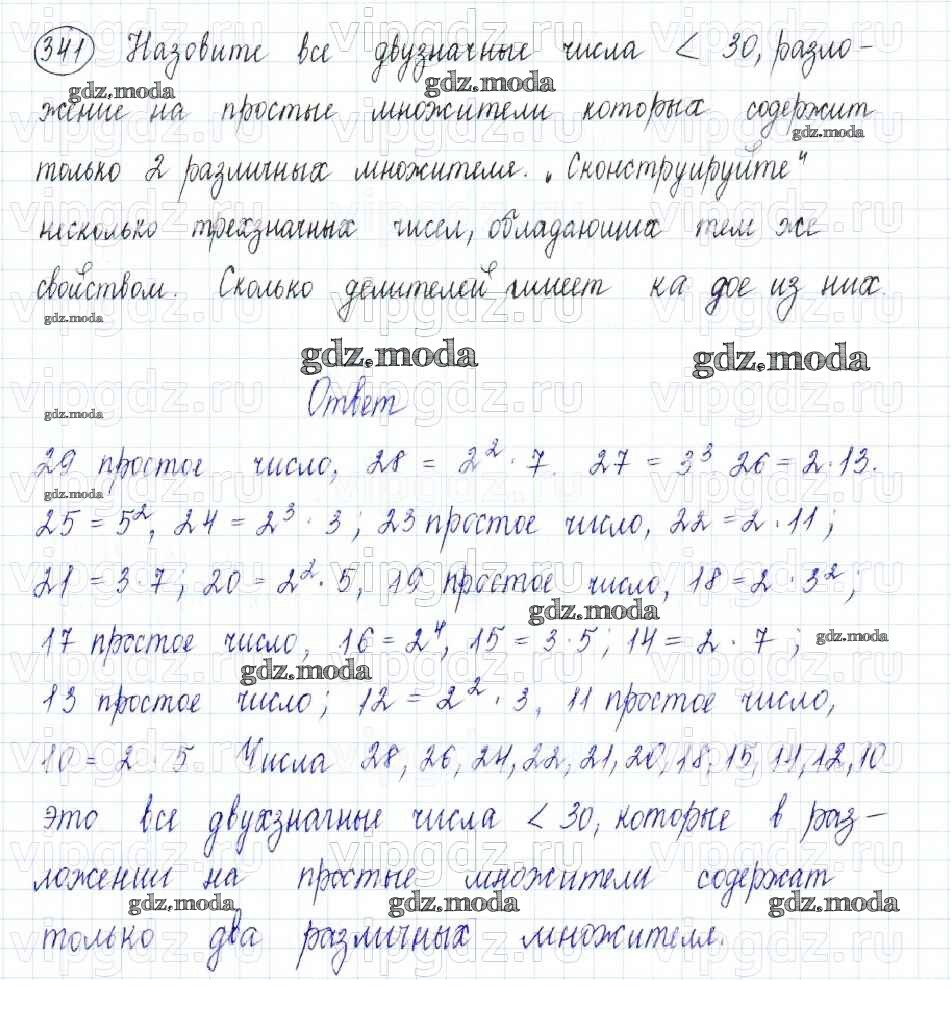 341 Назовите все двузначные числа < 30, разло-
gdz.moda gdz.moda
жение на простые множители которых содержит
gdz.moda
только 2 различных множителя. „Сконструируйте“
несколько трехзначных чисел, обладающих тем же
свойством. Сколько делителей имеет ка дое из них.
gdz.moda
gdz.moda gdz.moda
Ответ
gdz.moda
29 простое число, 28 = 2² · 7. 27 = 3³ 26 = 2·13.
gdz.moda
25 = 5², 24 = 2³ · 3; 23 простое число, 22 = 2 · 11;
21 = 3·7; 20 = 2² · 5, 19 простое число, 18 = 2 · 3²;
gdz.moda
17 простое число, 16 = 2⁴, 15 = 3·5; 14 = 2 · 7 ; gdz.moda
gdz.moda
13 простое число; 12 = 2² · 3, 11 простое число,
10 = 2 · 5 Числа 28, 26, 24, 22, 21, 20, 18, 15, 14, 12, 10
это все двухзначные числа < 30, которые в раз-
ложении на простые множители содержат
gdz.moda gdz.moda gdz.moda
только два различных множителя.
vipgdz.ru